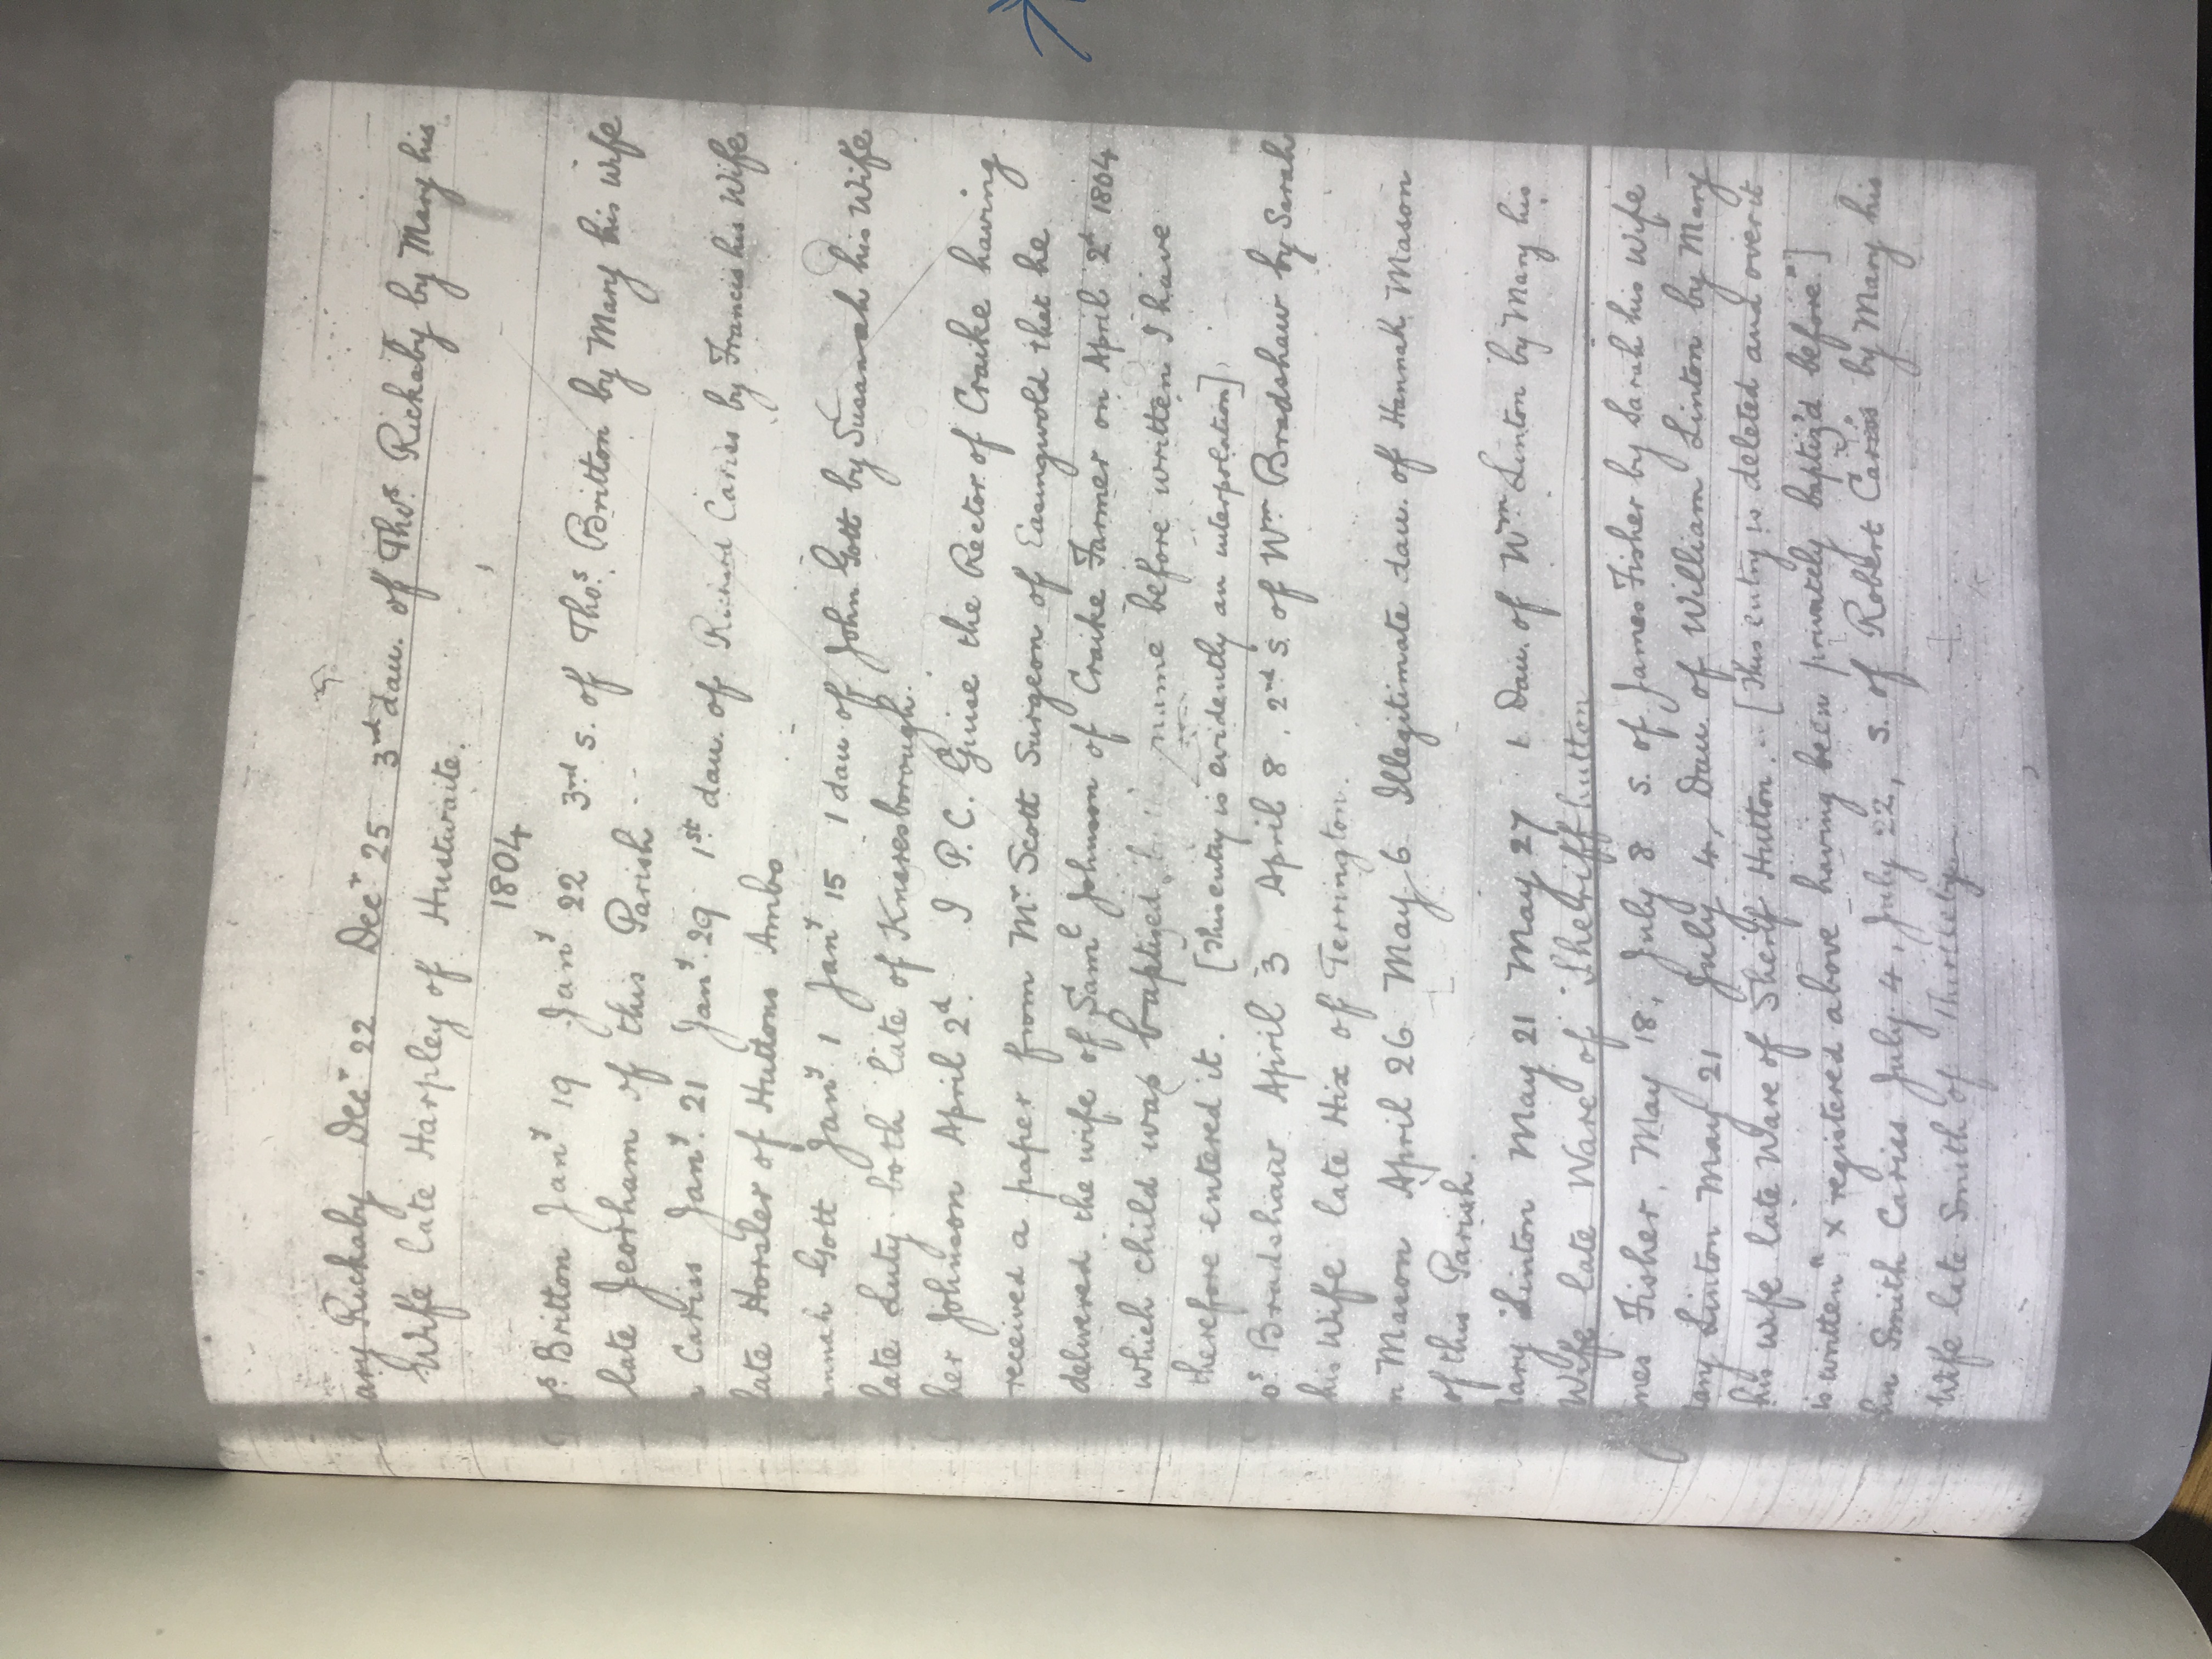 ary Rickaby Decr 22 Decr 25 3rd dau. of Thos. Rickaby by Mary his
Wife late Harpley of Hustwaite.
1804
s. Britton Jany 19 Jany 22 3rd s. of Thos. Britton by Mary his Wife
late Jeorham of this Parish
Cariss Jany. 21 Jany. 29 1st dau. of Richard Cariss by Francis his Wife
late Horsler of Huttons Ambo
annah Gott Jany 1 Jany 15 1 dau of John Gott by Susanah his Wife
late Luty both late of Knaresborough.
her Johnson April 2d. I P. C. Guise the Rector of Craike having
received a paper from Mr Scott Surgeon of Easingwold that he
delivered the wife of Saml Johnson of Craike Farmer on April 2d 1804
which child was baptized name before written I have
therefore entered it. [This entry is evidently an interpolation].
os Bradshaw April 3 April 8. 2nd s. of Wm Bradshaw by Sarah
his Wife late Hix of Terrington.
n Mason April 26 May 6 Illegitimate dau. of Hannah Mason
of this Parish.
ary Linton May 21 May 27 1 Dau. of Wm Linton by Mary his
Wife late Ware of Sheriff hutton
mes Fisher. May 18, July 8 s. of James Fisher by Sarah his Wife
ary Linton May 21 July 4, Dau of William Linton by Mary
his wife late Ware of Sherif Hutton. [This entry is deleted and over it
is written "x registered above having been privately baptiz'd before"]
hn Smith Cariss July 4, July 22, s. of Robert Cariss by Mary his
Wife late Smith of Thirkleby